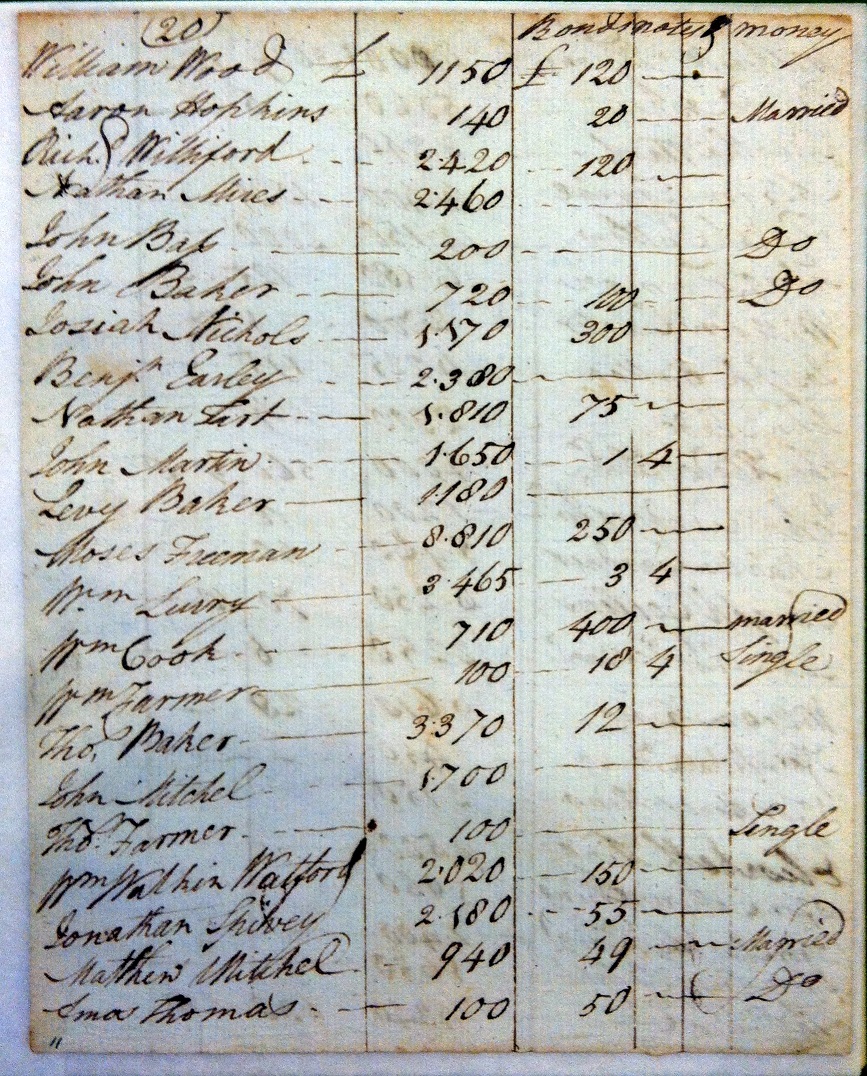 (20) Bond notes & money
William Wood £ 1150 £ 120
Aaron Hopkins 140 20 Married
Richd Williford 2.420 120
Nathan Mires 2.460
John Bat 200 Do
John Baker 720 100 Do
Josiah Nichols 1.570 300
Benjn Earley 2.380
Nathan Tart 1.810 75
John Martin 1.650 1 4
Levy Baker 1180
Moses Freeman 8.810 250
Wm Lury 3.465 3 4
Wm Cook 710 400 married
Wm Farmer 100 18 4 Single
Thos Baker 3.370 12
John Mitchel 1.700
Thos Farmer 100 Single
Wm Watford 2.020 150
Jonathan Spivey 2.180 55
Mathew Mitchel 940 49 Married
Amos Thomas 100 50 Do